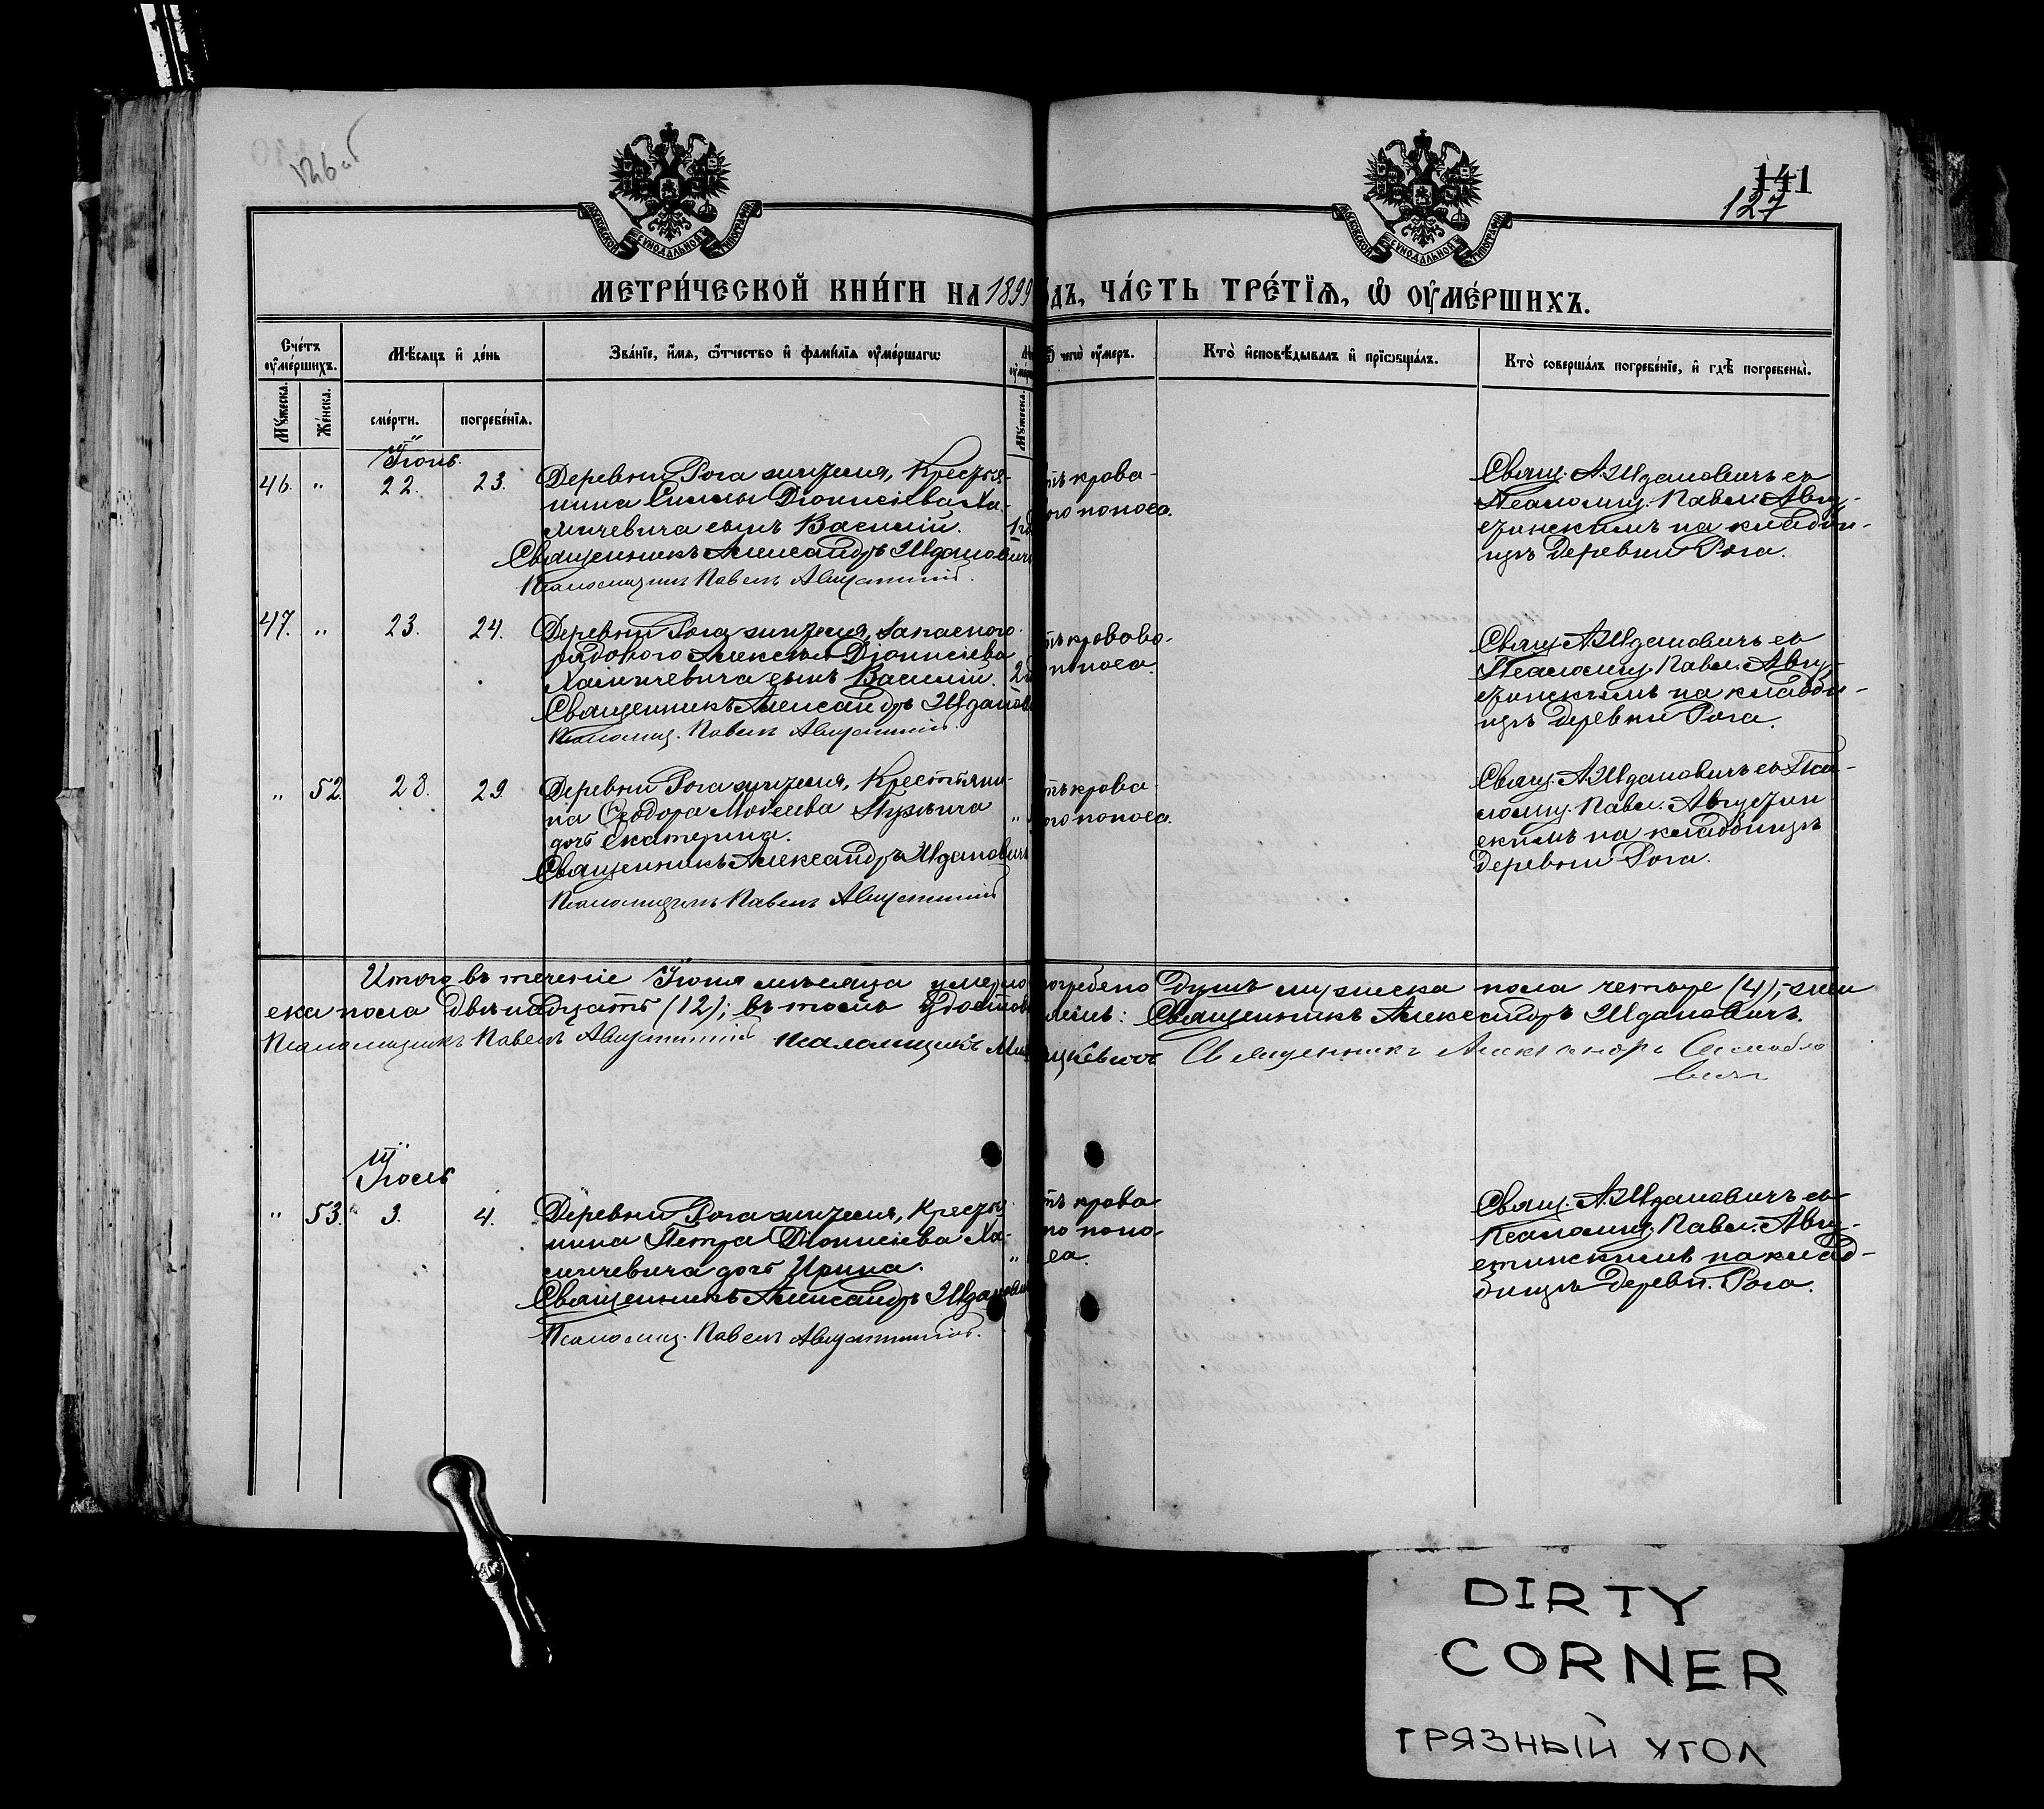 126 об
141
127
МОСКОВСКОЙ СѴНОДАЛЬНОЙ ТИПОГРАФІИ
МОСКОВСКОЙ СѴНОДАЛЬНОЙ ТИПОГРАФІИ
МЕТРИ́ЧЕСКОЙ КНИ́ГИ НА 1899 ДЪ, ЧА́СТЬ ТРЕ́ТЇѦ, Ѡ҆ ОУ҆МЕ́РШИХЪ.
Сче́тъ оу҆ме́ршихъ.
Мѣ́сяцъ и҆ де́нь
Зва́нїе, и҆́мя, ѻ҆́тчество и҆ фами́лїя оу҆ме́ршагѡ
чегѡ̀ оу҆́меръ.
Кто̀ и҆сповѣ́дывалъ и҆ прїѡбща́лъ.
Кто̀ соверша́лъ погребе́нїе, и҆ гдѣ̀ погребены̀.
Мꙋ́жеска.
Же́нска.
сме́рти.
погребе́нїя.
Мꙋ́жеска.
Іюнь.
46. " 22. 23. Деревни Рога жителя, Крестья-
нина Симы Діонисіева Ха-
личевича сынъ Василій.
Священникъ Александръ Ждановичъ
Псаломщикъ Павелъ Августинскій.
тъ крова-
ого поноса.
Свящ. А. Ждановичъ съ
Псаломщ. Павл. Авгу-
стинскимъ на кладби-
щѣ деревни Рога.
47. " 23. 24. Деревни Рога жителя, запасного
рядового Алексѣя Діонисіева
Халичевича сынъ Василій.
Священникъ Александръ Ждано
Псаломщ. Павелъ Августинскій.
тъ кровово-
поноса
Свящ. А. Ждановичъ съ
Псаломщ. Павл. Авгу-
стинскимъ на кладби-
щѣ деревни Рога.
" 52. 28. 29. Деревни Рога жителя, Крестьяни-
на Ѳеодора Моѵсеева
дочь Екатерина.
Священникъ Александръ Ждановичъ
Псаломщикъ Павелъ Августинскій
тъ крова
ого поноса.
Свящ. А. Ждановичъ съ Пса-
ломщ. Павл. Августин-
скимъ на кладбищѣ
деревни Рога.
Итого въ теченіе Іюня мѣсяца умерло погребено душъ мужеска пола четыре (4), жен
ска пола двѣнадцать (12); въ томъ удостов Священникъ Александръ Ждановичъ.
Псаломщикъ Павелъ Августинскій псаломщикъ Ми цкевичъ Священникъ Александръ Самойло
вичъ
Іюль
" 53. 3. 4. Деревни Рога жителя, Крестья-
нина Петра Діонисіева Ха-
личевича дочь Ирина.
Священникъ Александръ Жданович
Псаломщ. Павелъ Августинскій.
тъ крова
го поно-
са.
Свящ. А. Ждановичъ съ
Псаломщ. Павл. Авгу-
стинскимъ на клад-
бищѣ деревн. Рога.
DIRTY
CORNER
ГРЯЗНЫЙ УГОЛ